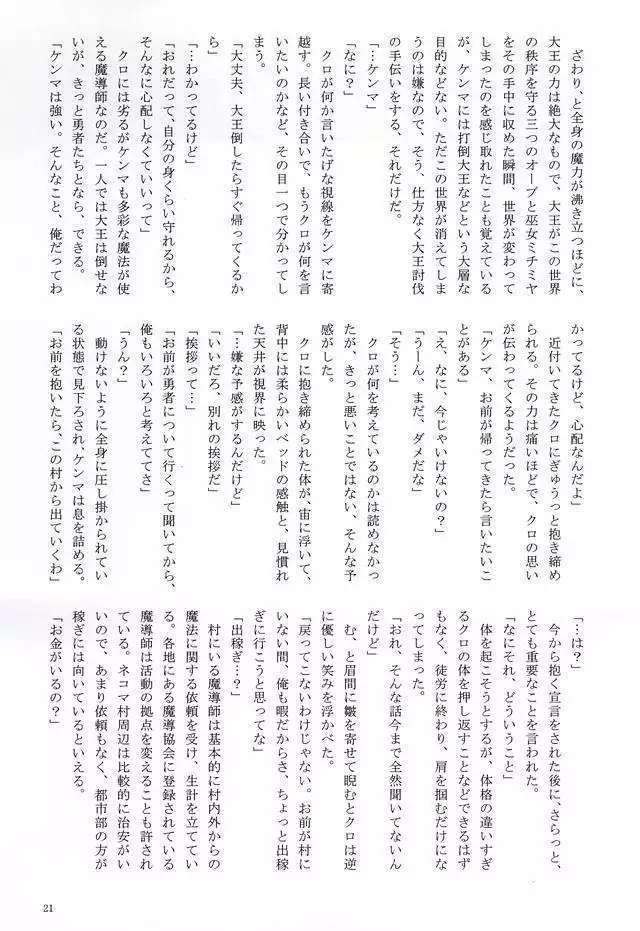 ざわり、と全身の魔力が沸き立つほどに、
大王の力は絶大なもので、大王がこの世界
の秩序を守る三つのオーブと巫女ミチミヤ
をその手中に収めた瞬間、世界が変わって
しまったのを感じ取れたことも覚えている
が、ケンマには打倒大王などという大層な
目的などない。ただこの世界が消えてしま
うのは嫌なので、そう、仕方なく大王討伐
の手伝いをする、それだけだ。
「…ケンマ」
「なに？」
クロが何か言いたげな視線をケンマに寄
越す。長い付き合いで、もうクロが何を言
いたいのかなど、その目一つで分かってし
まう。
「大丈夫、大王倒したらすぐ帰ってくるか
ら」
「…わかってるけど」
「おれだって、自分の身くらい守れるから、
そんなに心配しなくていいって」
クロには劣るがケンマも多彩な魔法が使
える魔導師なのだ。一人では大王は倒せな
いが、きっと勇者たちとなら、できる。
「ケンマは強い。そんなこと、俺だってわ
かってるけど、心配なんだよ」
近付いてきたクロにぎゅうっと抱き締め
られる。その力は痛いほどで、クロの思い
が伝わってくるようだった。
「ケンマ、お前が帰ってきたら言いたいこ
とがある」
「え、なに、今じゃいけないの？」
「うーん、まだ、ダメだな」
「そう…」
クロが何を考えているのかは読めなかっ
たが、きっと悪いことではない、そんな予
感がした。
クロに抱き締められた体が、宙に浮いて、
背中には柔らかいベッドの感触と、見慣れ
た天井が視界に映った。
「…嫌な予感がするんだけど」
「いいだろ、別れの挨拶だ」
「挨拶って…」
「お前が勇者について行くって聞いてから、
俺もいろいろと考えててさ」
「うん？」
動けないように全身に圧し掛かられてい
る状態で見下ろされ、ケンマは息を詰める。
「お前を抱いたら、この村から出ていくわ」
「…は？」
今から抱く宣言をされた後に、さらっと、
とても重要なことを言われた。
「なにそれ、どういうこと」
体を起こそうとするが、体格の違いすぎ
るクロの体を押し返すことなどできるはず
もなく、徒労に終わり、肩を掴むだけにな
ってしまった。
「おれ、そんな話今まで全然聞いてないん
だけど」
む、と眉間に皺を寄せて睨むとクロは逆
に優しい笑みを浮かべた。
「戻ってこないわけじゃない。お前が村に
いない間、俺も暇だからさ、ちょっと出稼
ぎに行こうと思ってな」
「出稼ぎ…？」
村にいる魔導師は基本的に村内外からの
魔法に関する依頼を受け、生計を立ててい
る。各地にある魔導協会に登録されている
魔導師は活動の拠点を変えることも許され
ている。ネコマ村周辺は比較的に治安がい
いので、あまり依頼もなく、都市部の方が
稼ぎには向いているといえる。
「お金がいるの？」
21